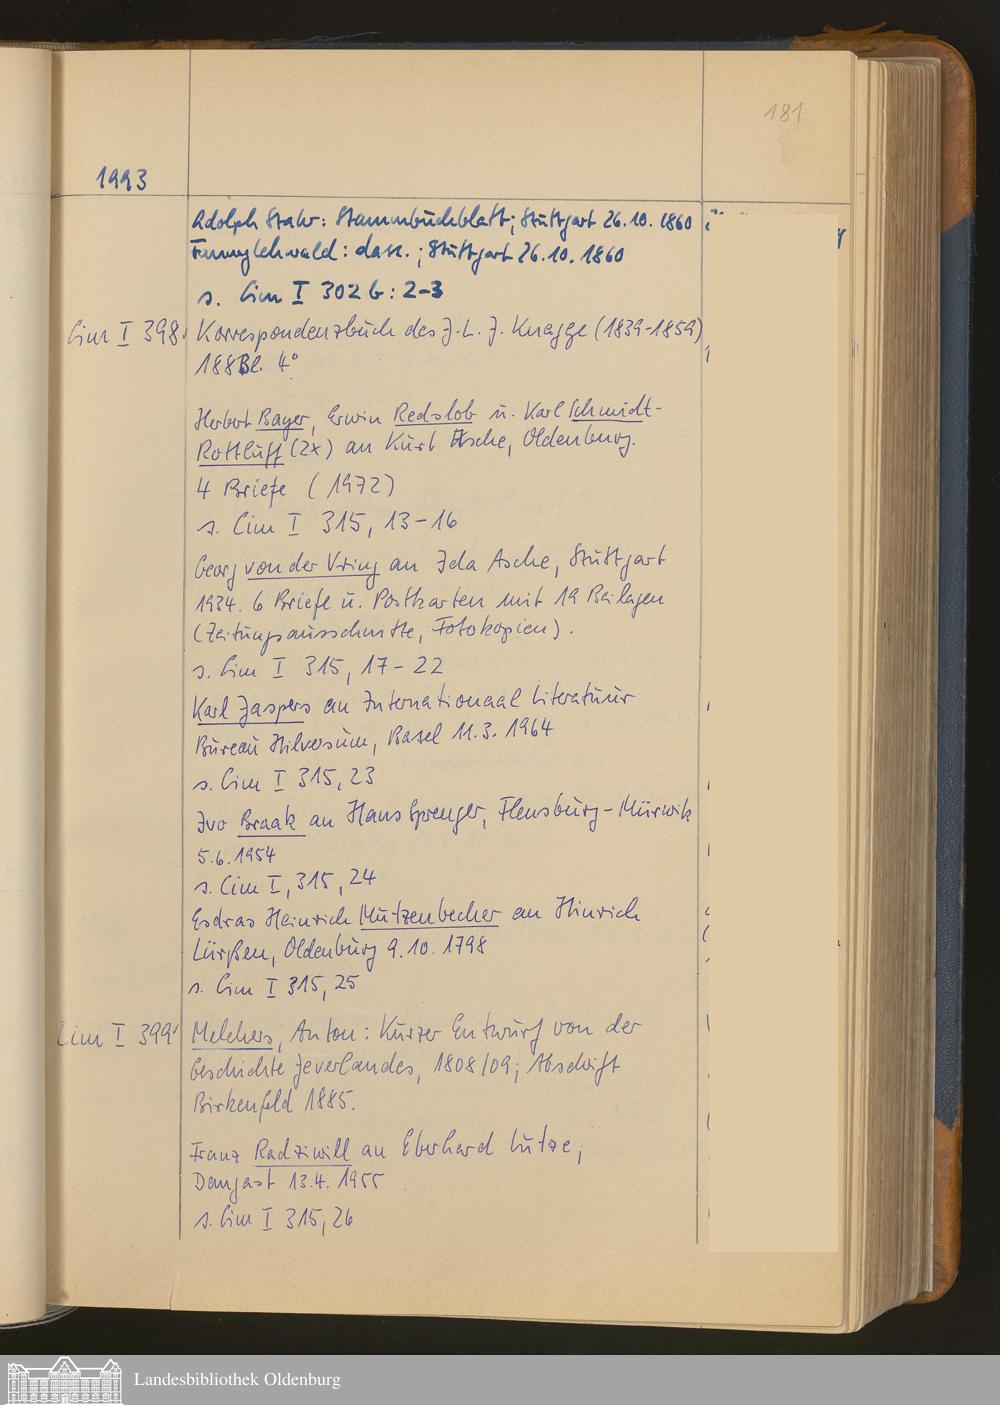 181
1993
Adolph Stahr: Stammbuchblatt; Stuttgart 26.10.1860
Fanny Lewald: dass.; Stuttgart 26.10.1860
s. Cim I 302 b: 2-3
Cim I 398. Korrespondenzbuch des J. L. J. Knagge (1839-1859)
188 Bl. 4°
Herbert Bayer, Erwin Redslob u. Karl Schmidt-
Rottluff (2x) an Kurt Asche, Oldenburg.
4 Briefe (1972)
s. Cim I 315, 13-16
Georg von der Vring an Ida Asche, Stuttgart
1934. 6 Briefe u. Postkarten mit 19 Beilagen
(Zeitungsausschnitte, Fotokopien).
s. Cim I 315, 17-22
Karl Jaspers an Internationaal Literatuur
Bureau Hilversum, Basel 11.3.1964
s. Cim I 315, 23
Ivo Braak an Hans Sprenger, Flensburg-Mürwik
5.6.1954
s. Cim I, 315, 24
Esdras Heinrich Mutzenbecher an Hinrich
Lürßen, Oldenburg 9.10.1798
s. Cim I 315, 25
Cim I 399 Melchers, Anton: Kurzer Entwurf von der
Geschichte Jeverlandes, 1808/09; Abschrift
Birkenfeld 1885.
Franz Radziwill an Eberhard Lutze,
Dangast 13.4.1955
s. Cim I 315, 26
Landesbibliothek Oldenburg